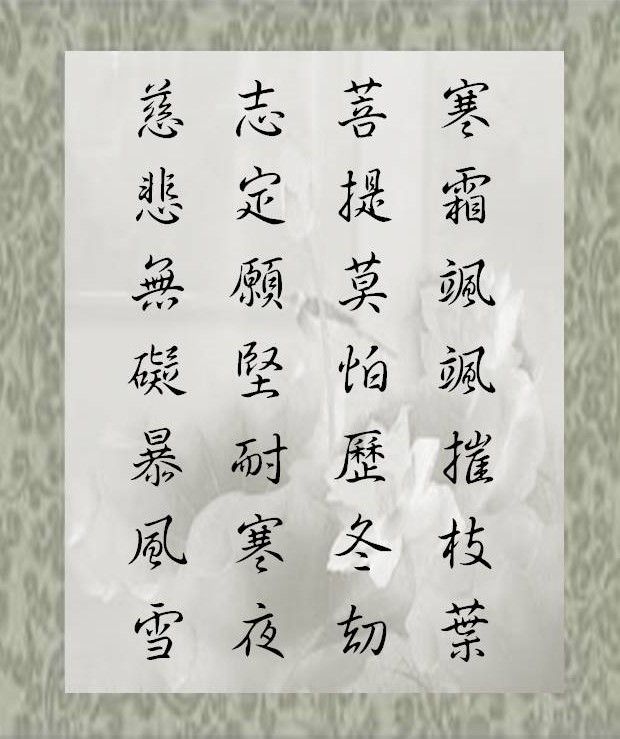 寒霜颯颯摧枝葉
菩提莫怕歷冬劫
志定願堅耐寒夜
慈悲無礙暴風雪